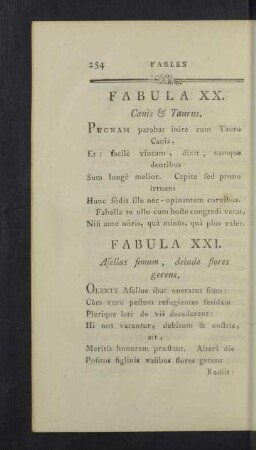 254 FABLES
FABULA XX.
Canis & Taurus.
PUGNAM parabat inire cum Tauro
Canis,
Et: facilè vincam, dixit, namque
dentibus
Sum longè melior. Capite sed prono
irruens
Hunc fodit ille nec-opinantem cornibus.
Fabella te ullo cum hoste congredi vetat,
Nisi antè nôris, quâ minùs, quâ plus valet.
FABULA XXI.
Asellus fimum, deinde flores
gerens.
OLENTE Asellus ibat oneratus fimo:
Cùm verò pestem refugientes fœtidam
Plerique latè de viâ decederent:
Hi nos verantur, debitum & nostris,
ait,
Meritis honorem præstant. Alterâ die
Positos figlinis vasibus flores gerens
Rediit: